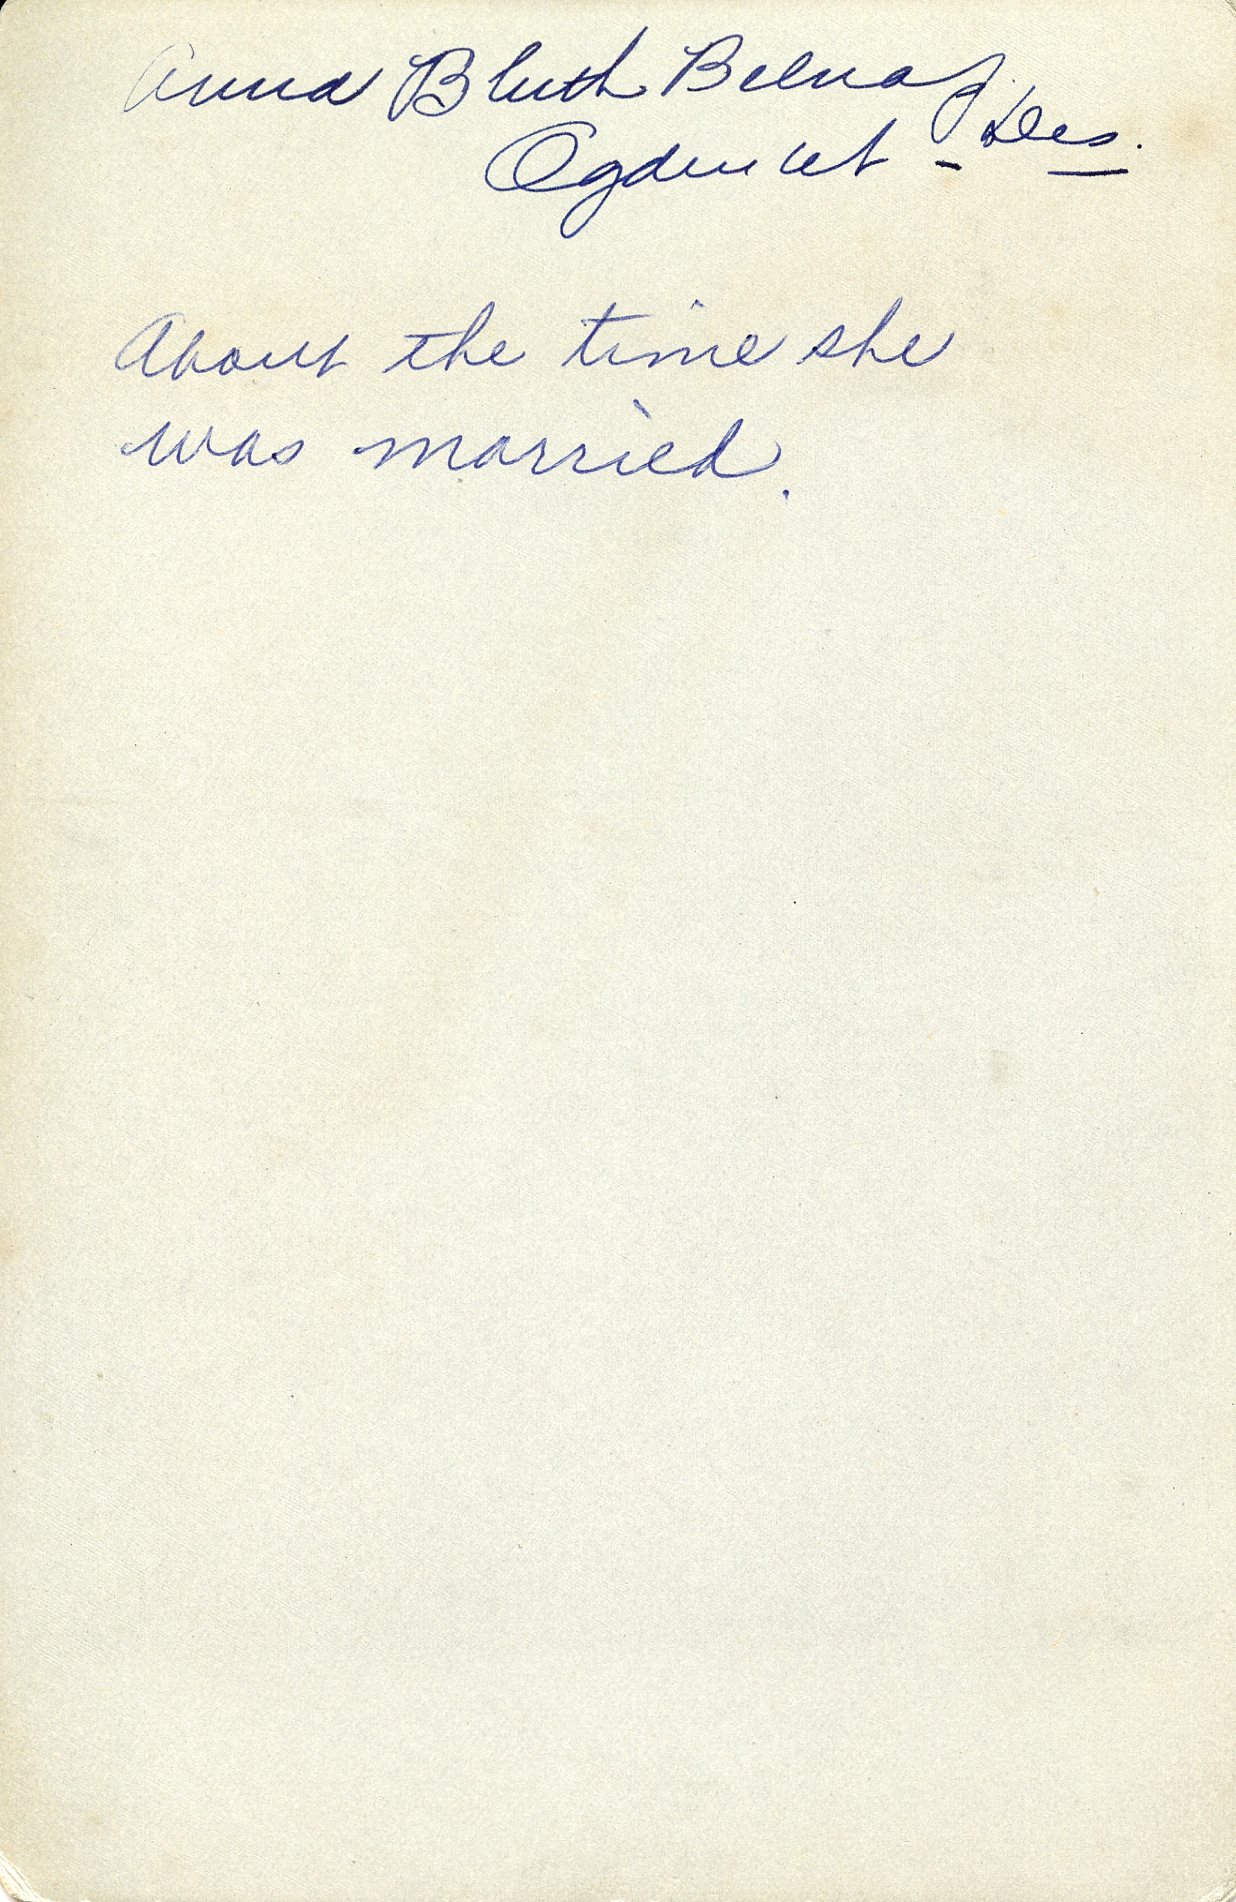 Anna Bluth Belnap.
Ogden Ut - Des.
About the time she
was married.